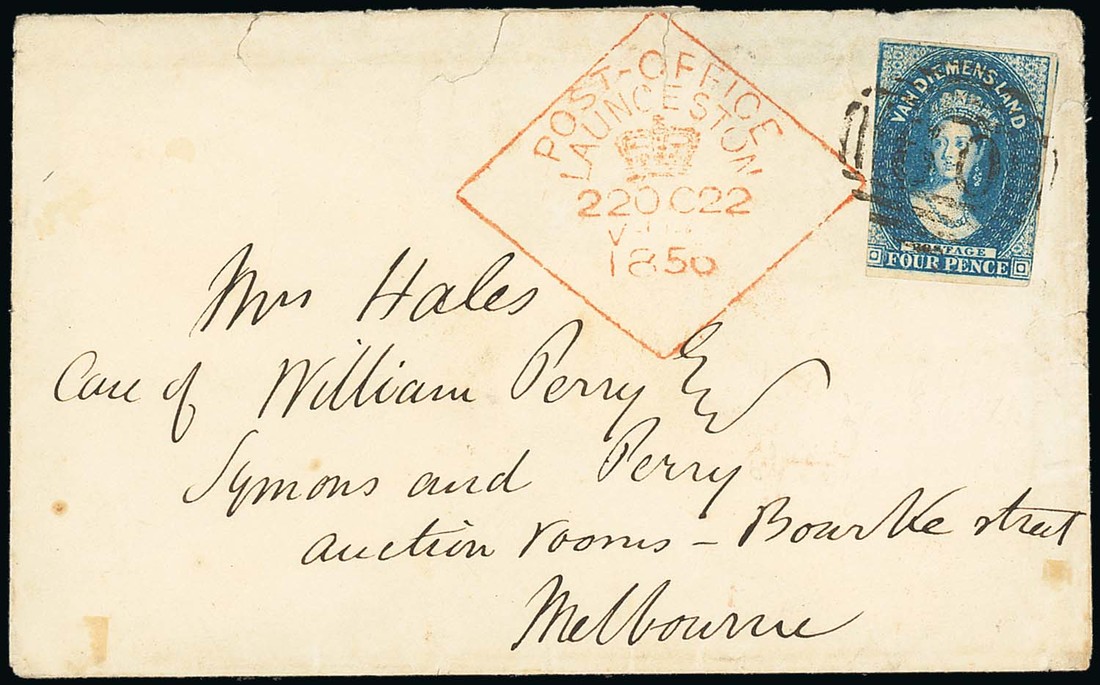 POST-OFFICE
LAUNCESTON
22 OC 22
1856
VAN DIEMENS LAND
POSTAGE
FOUR PENCE
Mrs Hales
Care of William Perry Esq
Symons and Perry
auction rooms – Bourke street
Melbourne